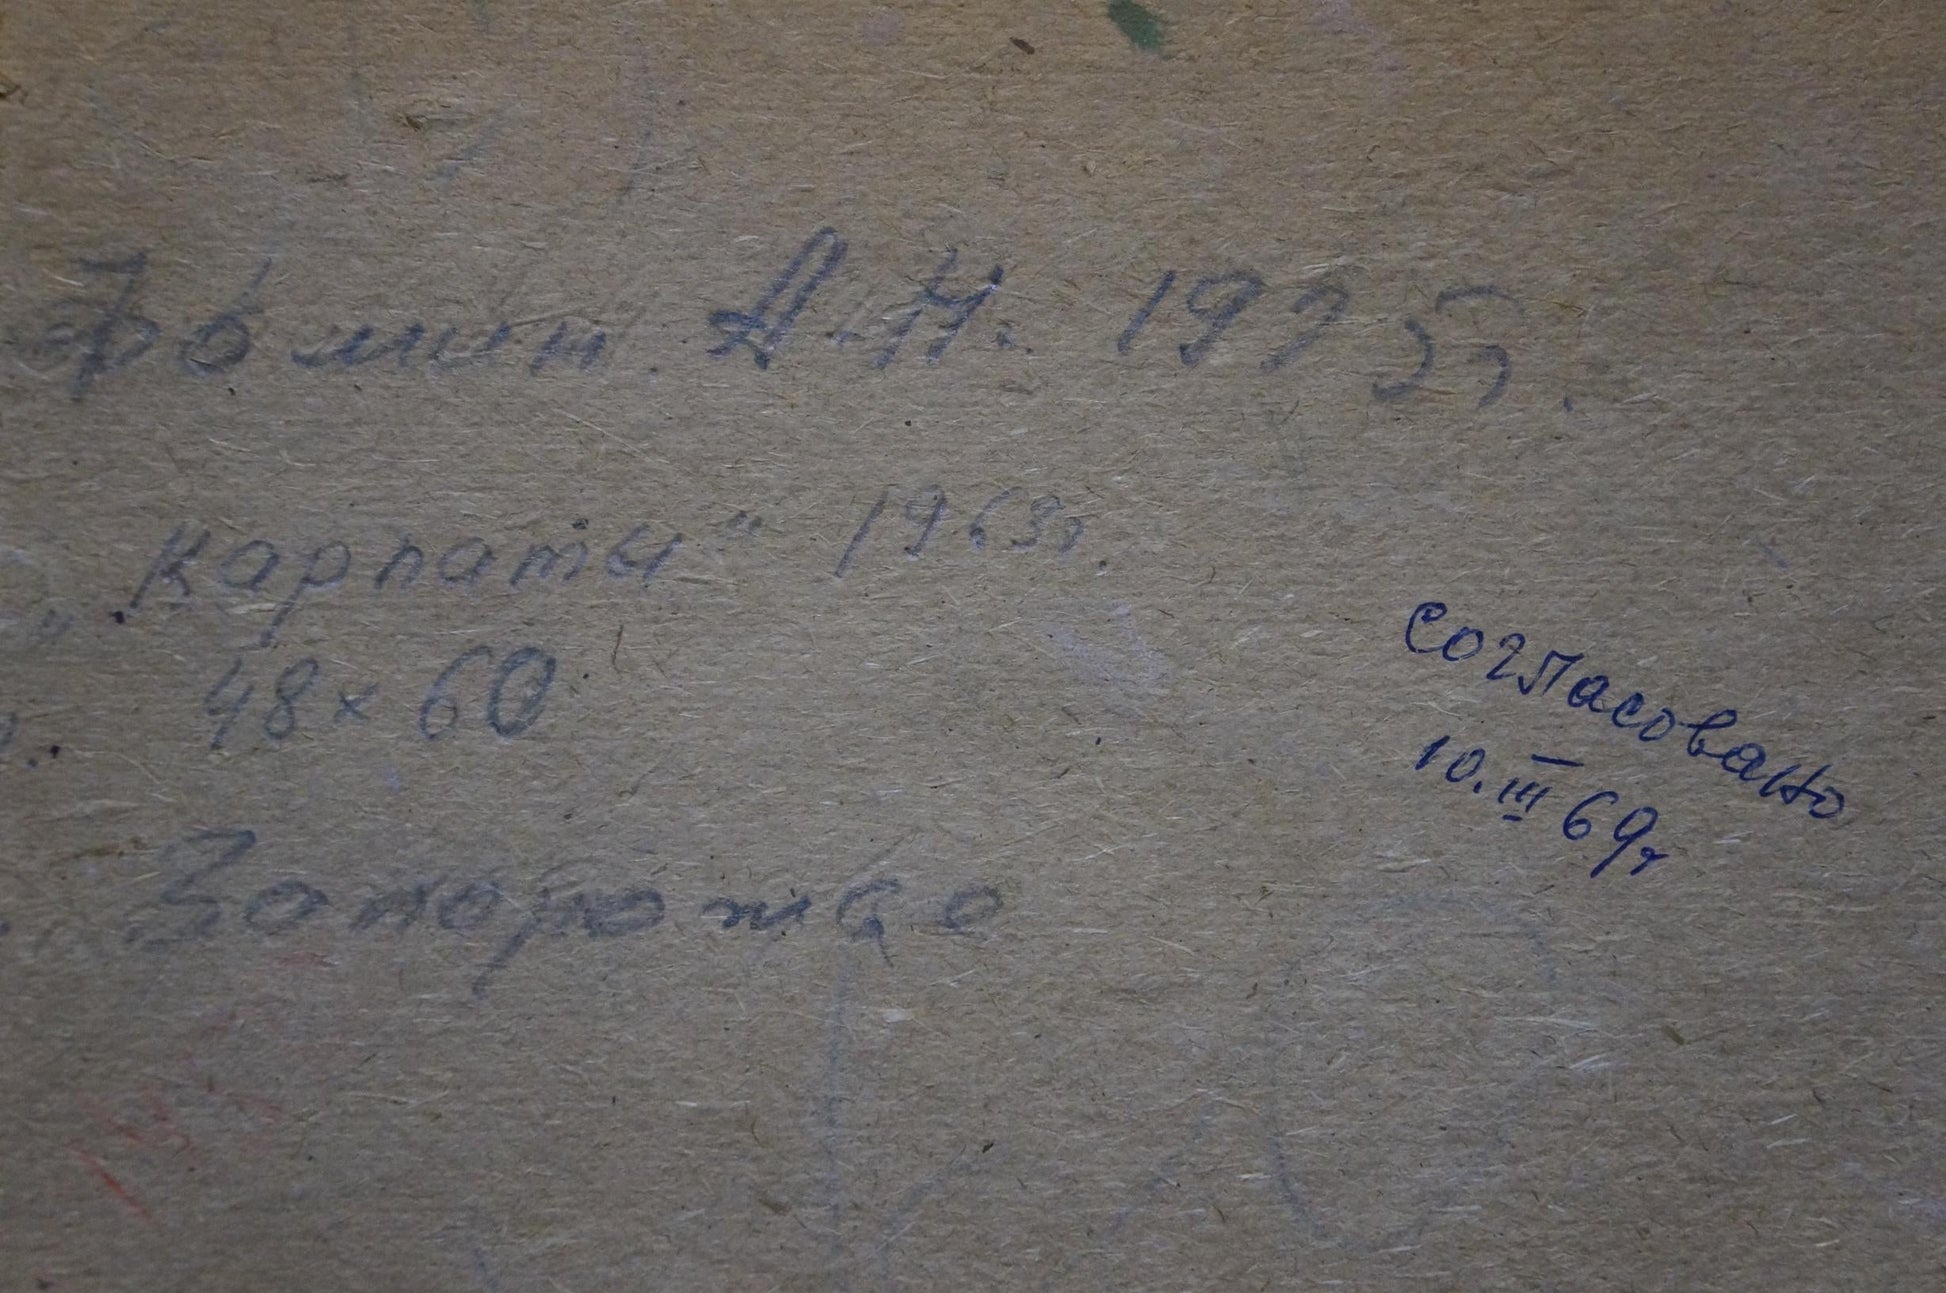 Фомин А.Н. 1925г.
„Карпаты“ 1963г.
48 x 60
Запорожье
согласовано
10.III 69г